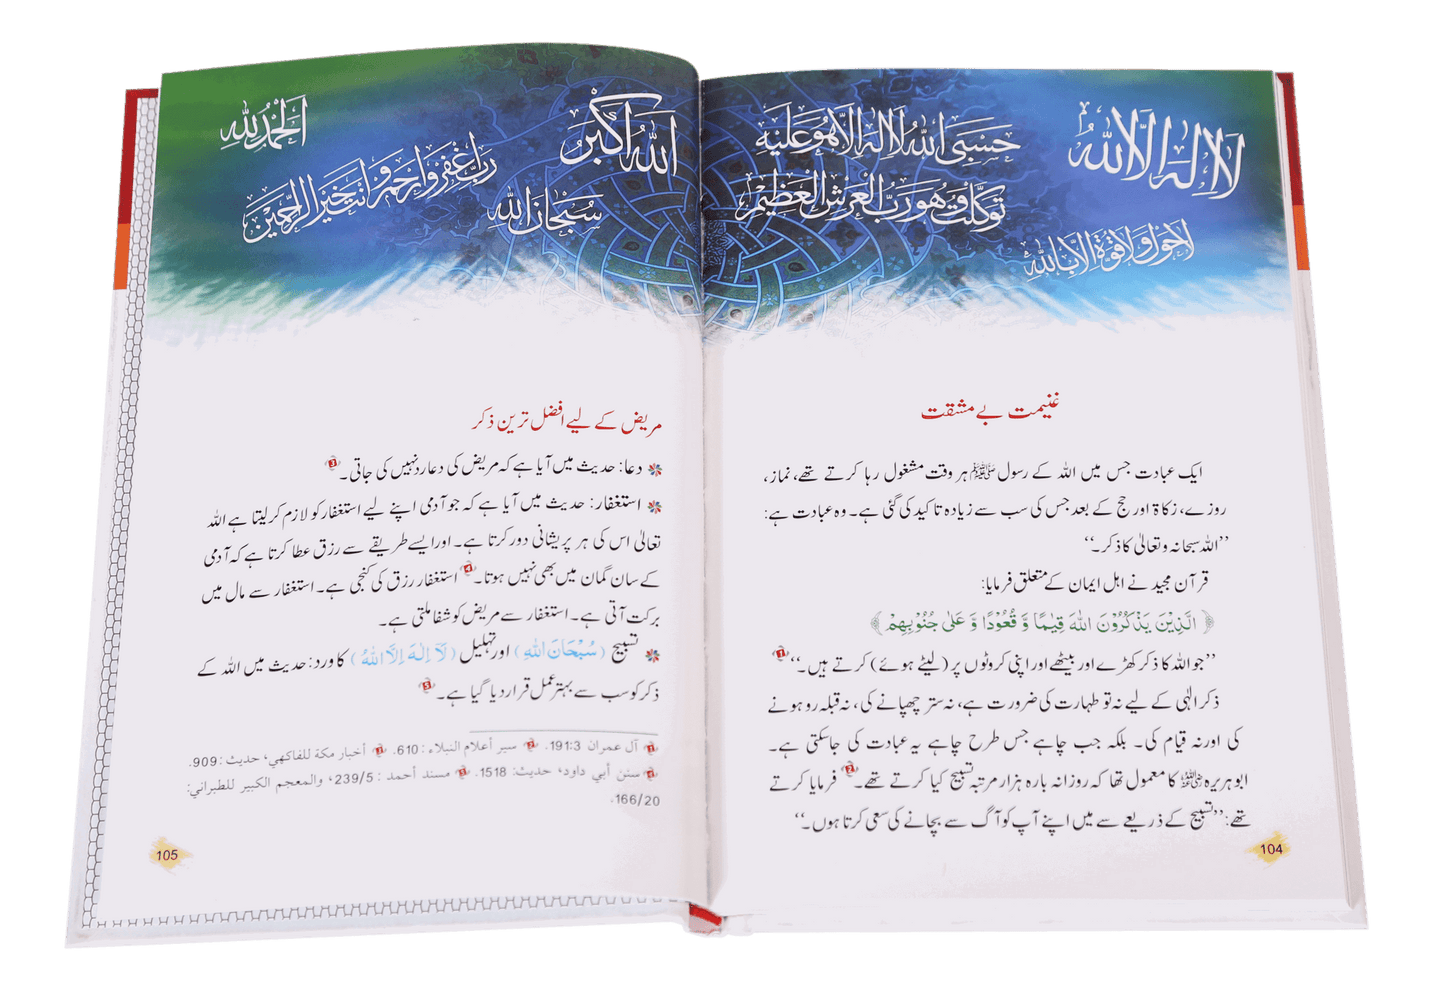 لا اله الا الله
حسبی الله لا اله الا هو علیه
توکلت و هو رب العرش العظیم
لا حول ولا قوة الا بالله
غنیمت بے مشقت
ایک عبادت جس میں اللہ کے رسول ﷺ ہر وقت مشغول رہا کرتے تھے، نماز،
روزے، زکاۃ اور حج کے بعد جس کی سب سے زیادہ تاکید کی گئی ہے۔ وہ عبادت ہے:
’’اللہ سبحانہ وتعالیٰ کا ذکر۔‘‘
قرآن مجید نے اہل ایمان کے متعلق فرمایا:
﴿ الَّذِيْنَ يَذْكُرُوْنَ اللهَ قِيٰمًا وَّ قُعُوْدًا وَّ عَلٰى جُنُوْبِهِمْ﴾
’’جو اللہ کا ذکر کھڑے اور بیٹھے اور اپنی کروٹوں پر (لیٹے ہوئے) کرتے ہیں۔‘‘ 1
ذکر الٰہی کے لیے نہ تو طہارت کی ضرورت ہے، نہ ستر چھپانے کی، نہ قبلہ رو ہونے
کی اور نہ قیام کی۔ بلکہ جب چاہے جس طرح چاہے یہ عبادت کی جاسکتی ہے۔
ابو ہریرہ رضی اللہ عنہ کا معمول تھا کہ روزانہ بارہ ہزار مرتبہ تسبیح کیا کرتے تھے۔ 2 فرمایا کرتے
تھے: ’’تسبیح کے ذریعے سے میں اپنے آپ کو آگ سے بچانے کی سعی کرتا ہوں۔‘‘
104
الله اکبر
الحمد لله
رب اغفر وارحم وانت خیر الراحمین
سبحان الله
مریض کے لیے افضل ترین ذکر
دعا: حدیث میں آیا ہے کہ مریض کی دعا رد نہیں کی جاتی۔ 3
استغفار: حدیث میں آیا ہے کہ جو آدمی اپنے لیے استغفار کو لازم کر لیتا ہے اللہ
تعالیٰ اس کی ہر پریشانی دور کرتا ہے۔ اور ایسے طریقے سے رزق عطا کرتا ہے کہ آدمی
کے سان گمان میں بھی نہیں ہوتا۔ 4 استغفار رزق کی کنجی ہے۔ استغفار سے مال میں
برکت آتی ہے۔ استغفار سے مریض کو شفا ملتی ہے۔
تسبیح (سُبْحَانَ اللهِ) اور تہلیل (لَآ اِلٰهَ اِلَّا اللهُ) کا ورد: حدیث میں اللہ کے
ذکر کو سب سے بہتر عمل قرار دیا گیا ہے۔ 5
1 آل عمران 191:3. 2 سير أعلام النبلاء: 610. 3 أخبار مكة للفاكهي، حديث: 909.
4 سنن أبي داود، حديث: 1518. 5 مسند أحمد: 239/5، والمعجم الكبير للطبراني:
166/20.
105